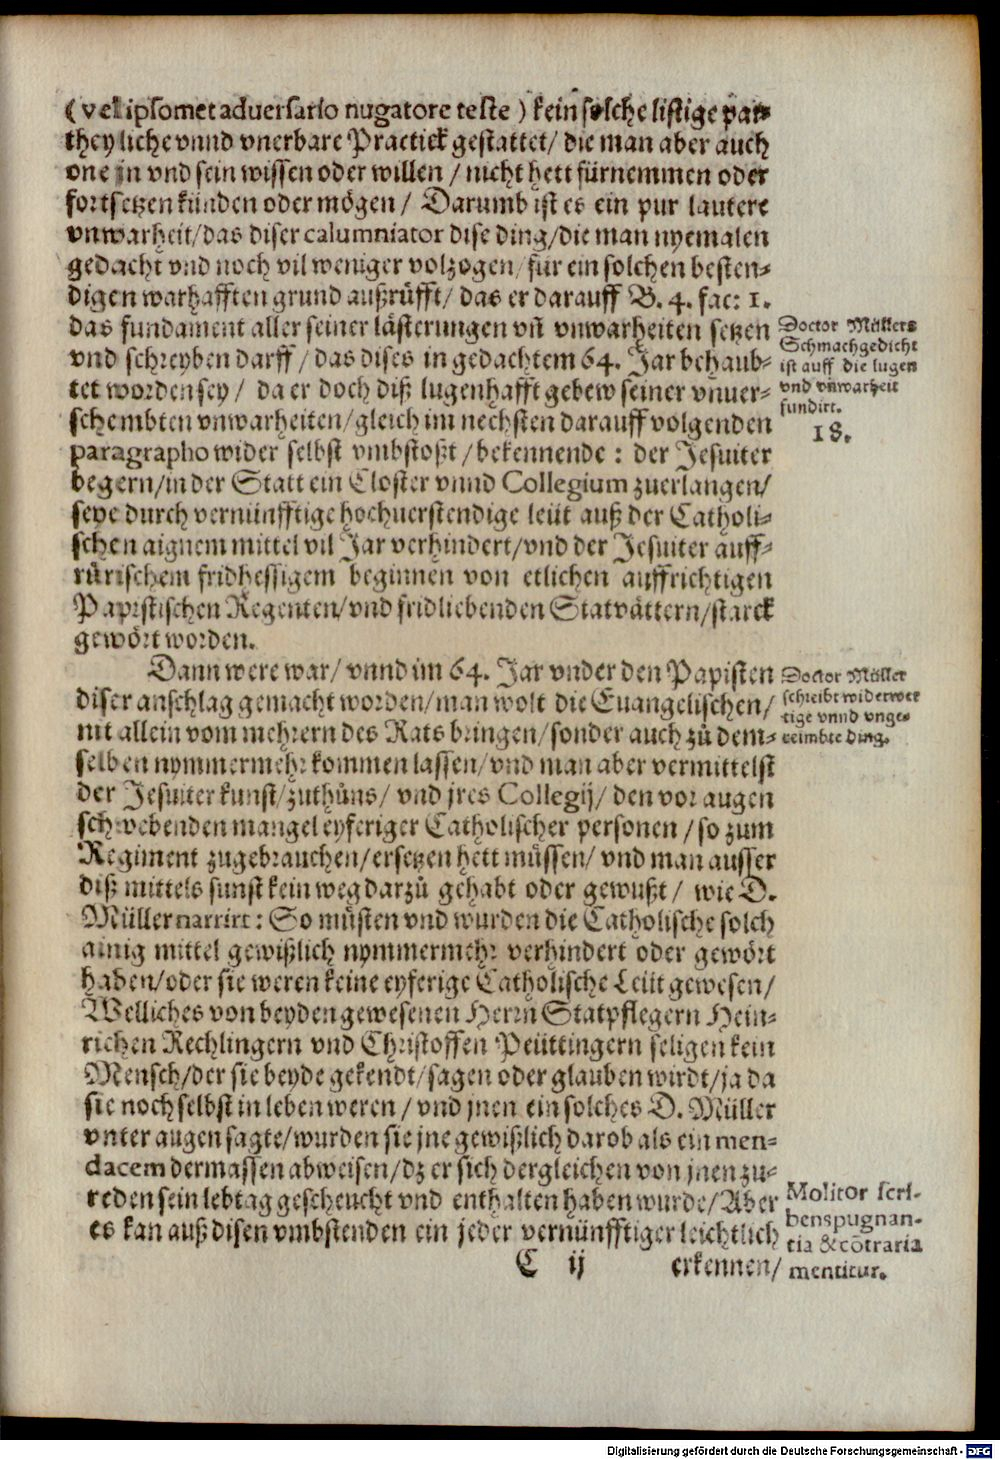 (vel ipsomet aduersario nugatore teste) kein solche listige par-
theyliche vnnd vnerbare Practick gestattet/ die man aber auch
one jn vnd sein wissen oder willen / nicht hett fürnemmen oder
fortsetzen künden oder mögen / Darumb ist es ein pur lautere
vnwarheit/das diser calumniator dise ding/die man nyemalen
gedacht vnd noch vil weniger volzogen/für ein solchen besten-
digen warhafften grund außrüfft/ das er darauff B. 4. fac: 1.
das fundament aller seiner lästerungen vñ vnwarheiten setzen
vnd schreyben darff / das dises in gedachtem 64. Jar behaub-
tet worden sey / da er doch diß lugenhafft gebew seiner vnuer-
schembten vnwarheiten/gleich im nechsten darauff volgenden
paragrapho wider selbst vmbstoßt /bekennende : der Jesuiter
begern/in der Statt ein Closter vnnd Collegium zuerlangen/
seye durch vernünfftige hochuerstendige leüt auß der Catholi-
schen aignem mittel vil Jar verhindert/vnd der Jesuiter auff-
rürischem fridhessigem beginnen von etlichen auffrichtigen
Papistischen Regenten/vnd fridliebenden Statvättern/starck
gewört worden.
Dann were war/ vnnd im 64. Jar vnder den Papisten
diser anschlag gemacht worden/man wolt die Euangelischen/
nit allein vom mehrern des Rats bringen/sonder auch zů dem-
selben nymmermehr kommen lassen/vnd man aber vermittelst
der Jesuiter kunst/zuthůns/ vnd jres Collegij/ den vor augen
schwebenden mangel eyferiger Catholischer personen /so zum
Regiment zugebrauchen/ersetzen hett müssen/ vnd man ausser
diß mittels sunst kein weg darzů gehabt oder gewußt / wie D.
Müller narrirt: So müsten vnd wurden die Catholische solch
ainig mittel gewißlich nymmermehr verhindert oder gewört
haben/oder sie weren keine eyferige Catholische Leüt gewesen/
Welliches von beyden gewesenen Herrn Statpflegern Hein-
richen Rechlingern vnd Christoffen Peüttingern seligen kein
Mensch/der sie beyde gekendt/sagen oder glauben wirdt/ja da
sie noch selbst in leben weren / vnd jnen ein solches D. Müller
vnter augen sagte/wurden sie jne gewißlich darob als ein men-
dacem dermassen abweisen/dz er sich dergleichen von jnen zu-
reden sein lebtag gescheucht vnd enthalten haben wurde/Aber
es kan auß disen vmbstenden ein jeder vernünfftiger leichtlich
C ij erkennen/
Doctor Müllers
Schmachgedicht
ist auff die lugen
vnd vnwarheit
fundirt.
18.
Doctor Müller
schreibt widerwer
tige vnnd vnge-
reimbte ding.
Molitor scri-
bens pugnan-
tia & cōtraria
mentitur.
Digitalisierung gefördert durch die Deutsche Forschungsgemeinschaft - DFG